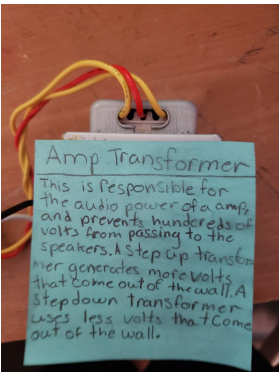 Amp Transformer
This is Responsible for
the audio power of a amp,
and prevents hundereds of
volts from passing to the
speakers. A Step Up transfor
mer generates more volts
that come out of the wall. A
step down transformer
uses less volts that Come
out of the wall.